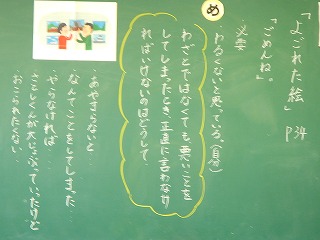 「よごれた絵」 P34
「ごめんね。」
め
わるくないと思っている。(自分)
必要
わざとではなくても悪いことを
してしまったとき正直に言わなけ
ればいけないのはどうして
・あやまらないと
・なんてことをしてしまった
・やらなければ
・さとしくんが大じょうぶっていったけど
・おこられたくない